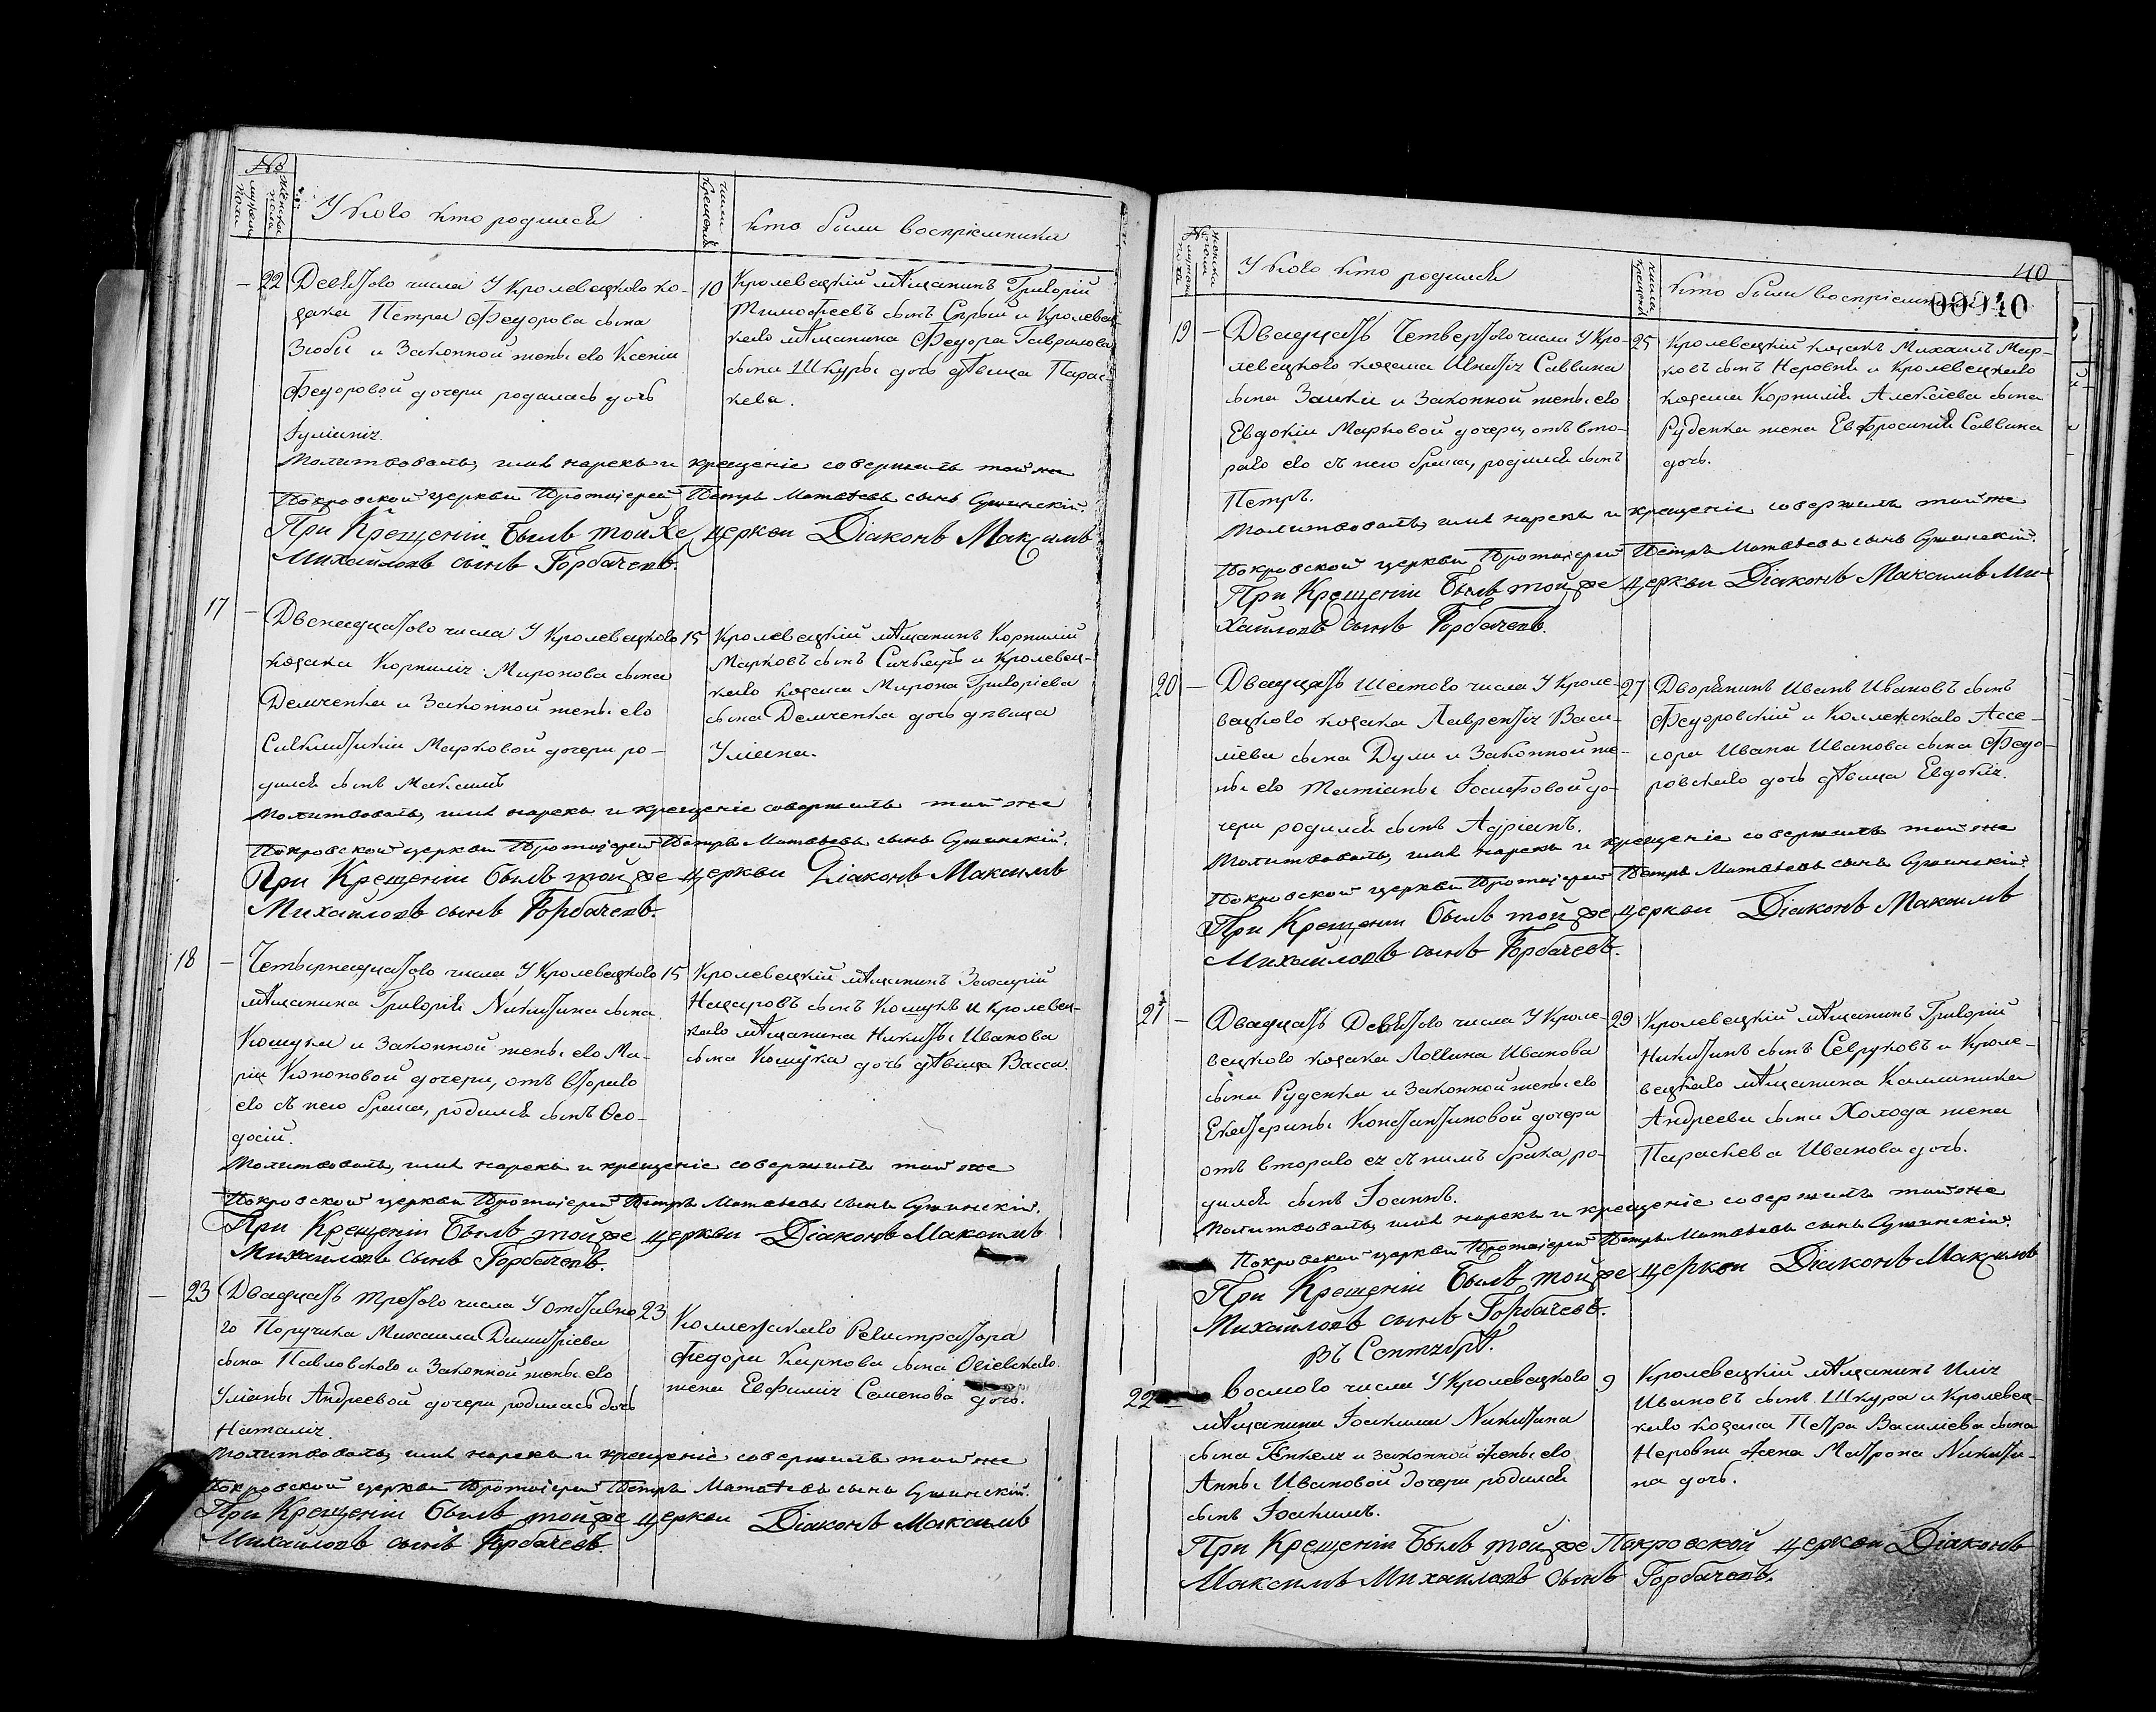 №
мужеска пола
женска пола
У кого кто родился
число крещенія
кто были воспріемники
— 22 Девятого числа У Кролевецкого ко-
зака Петра Федорова сына
Зюбы и Законной жены его Ксеніи
Федоровой дочери родилась дочь
Іуліанія.
10 Кролевецкій мѣщанинъ Григорій
Тимофеевъ сынъ Сѣрый и Кролевец-
каго мѣщанина Федора Гаврилова
сына Шкуры дочь дѣвица Парас-
кева.
Молитвовалъ, имя нарекъ и крещеніе совершилъ той же
Покровской церкви Протоіерей Петръ Матвѣевъ сынъ Сушинскій.
При Крещеніи былъ той же церкви Діаконъ Максимъ
Михайловъ сынъ Горбачевъ.
17 — Двенадцатого числа У Кролевецкого
козака Корнилія Миронова сына
Демченка и Законной жены его
Синклитикіи Марковой дочери ро-
дился сынъ Максимъ
15 Кролевецкій мѣщанинъ Корнилій
Марковъ сынъ и Кролевец-
каго козака Мирона Григоріева
сына Демченка дочь дѣвица
Уліана.
Молитвовалъ, имя нарекъ и крещеніе совершилъ той же
Покровской церкви Протоіерей Петръ Матвѣевъ сынъ Сушинскій.
При Крещеніи былъ той же церкви Діаконъ Максимъ
Михайловъ сынъ Горбачевъ.
18 — Четырнадцатого числа У Кролевецкого
мѣщанина Григорія Никитина сына
Кошука и Законной жены его Ма-
ріи Кононовой дочери, отъ второго
его съ нею брака, родился сынъ Ѳео-
досій.
15 Кролевецкій мѣщанинъ Захарій
Назаровъ сынъ Кошукъ и Кролевец-
каго мѣщанина Никиты Иванова
сына Кошука дочь дѣвица Васса.
Молитвовалъ, имя нарекъ и крещеніе совершилъ той же
Покровской церкви Протоіерей Петръ Матвѣевъ сынъ Сушинскій.
При Крещеніи былъ той же церкви Діаконъ Максимъ
Михайловъ сынъ Горбачевъ.
— 23 Двадцать третого числа У отставно
го Поручика Михаила Димитріева
сына Павловского и Законной жены его
Уліаны Андреевой дочери, родилась дочь
Наталія.
23 Коллежскаго Регистратора
Федора Карпова сына
жена Евфимія Семенова дочь.
Молитвовалъ, имя нарекъ и крещеніе совершилъ той же
Покровской церкви Протоіерей Петръ Матвѣевъ сынъ Сушинскій.
При Крещеніи былъ той же церкви Діаконъ Максимъ
Михайловъ сынъ Горбачевъ.
№
мужеска пола
женска пола
У кого кто родился
число крещенія
кто были воспріемники
40
00040
19 — Двадцать Четвертого числа У Кро-
левецкого козака Игнатія Саввина
сына Заики и Законной жены его
Евдокіи Марковой дочери, отъ вто-
раго его съ нею брака, родился сынъ
Петръ.
25 Кролевецкій козакъ Михаилъ Мар-
ковъ сынъ Неровня и Кролевецкаго
козака Корнилія Алексіева сына
Руденка жена Евфросинія Саввина
дочь.
Молитвовалъ, имя нарекъ и крещеніе совершилъ той же
Покровской церкви Протоіерей Петръ Матвѣевъ сынъ Сушинскій.
При Крещеніи былъ той же церкви Діаконъ Максимъ Ми-
хайловъ сынъ Горбачевъ.
20 — Двадцать Шестого числа У Кроле-
вецкого козака Лаврентія Васи-
ліева сына Дули и Законной же-
ны его Татіаны Іосифовой до-
чери родился сынъ Адріанъ.
27 Дворянинъ Иванъ Ивановъ сынъ
Федоровскій и Коллежскаго Ассе-
сора Ивана Иванова сына Федо-
ровскаго дочь дѣвица Евдокія.
Молитвовалъ, имя нарекъ и крещеніе совершилъ той же
Покровской церкви Протоіерей Петръ Матвѣевъ сынъ Сушинскій.
При Крещеніи былъ той же церкви Діаконъ Максимъ
Михайловъ сынъ Горбачевъ.
21 — Двадцать Девятого числа У Кроле-
вецкого козака Логгина Иванова
сына Руденка и Законной жены его
Екатерины Константиновой дочери
отъ втораго ея съ нимъ брака, ро-
дился сынъ Іоаннъ.
29 Кролевецкій мѣщанинъ Григорій
Никитинъ сынъ Севруковъ и Кроле-
вецкаго мѣщанина Каллиника
Андреева сына Холода жена
Параскева Иванова дочь.
Молитвовалъ, имя нарекъ и крещеніе совершилъ той же
Покровской церкви Протоіерей Петръ Матвѣевъ сынъ Сушинскій.
При Крещеніи былъ той же церкви Діаконъ Максимъ
Михайловъ сынъ Горбачевъ.
Въ Сентябрѣ.
22 — Восмого числа У Кролевецкого
мѣщанина Іоакима Никитина
сына и законной жены его
Анны Ивановой дочери родился
сынъ Іоакимъ.
9 Кролевецкій мѣщанинъ Илія
Ивановъ сынъ Шкура и Кролевец-
каго козака Петра Василіева сына
Неровни жена Матрона Никити-
на дочь.
При Крещеніи былъ той же Покровской церкви Діаконъ
Максимъ Михайловъ сынъ Горбачевъ.